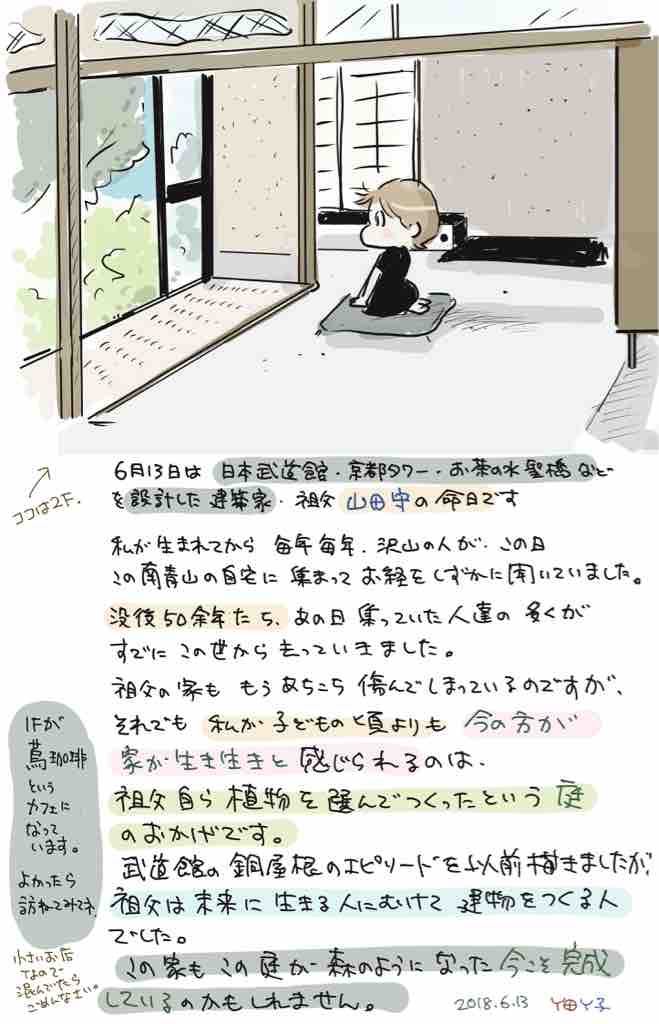 ココは2F.
6月13日は 日本武道館・京都タワー・お茶の水聖橋など
を設計した建築家・祖父 山田守の命日です
私が生まれてから 毎年毎年、沢山の人が、この日
この南青山の自宅に 集まって お経をしずかに聞いていました。
没後50余年たち、あの日 集っていた人達の 多くが
すでに この世から去っていきました。
祖父の家も もうあちこち 傷んでしまっているのですが、
それでも 私が子どもの頃よりも 今の方が
家が生き生きと 感じられるのは、
祖父自ら 植物を選んでつくったという 庭
のおかげです。
武道館の銅屋根のエピソードを以前描きましたが、
祖父は未来に生きる人にむけて 建物をつくる人
でした。
この家も この庭が森のようになった 今こそ完成
しているのかもしれません。
2018.6.13
1Fが
蔦珈琲
という
カフェに
なって
います。
よかったら
訪ねてみてネ
小さいお店
なので
混んでたら
ごめんなさい。